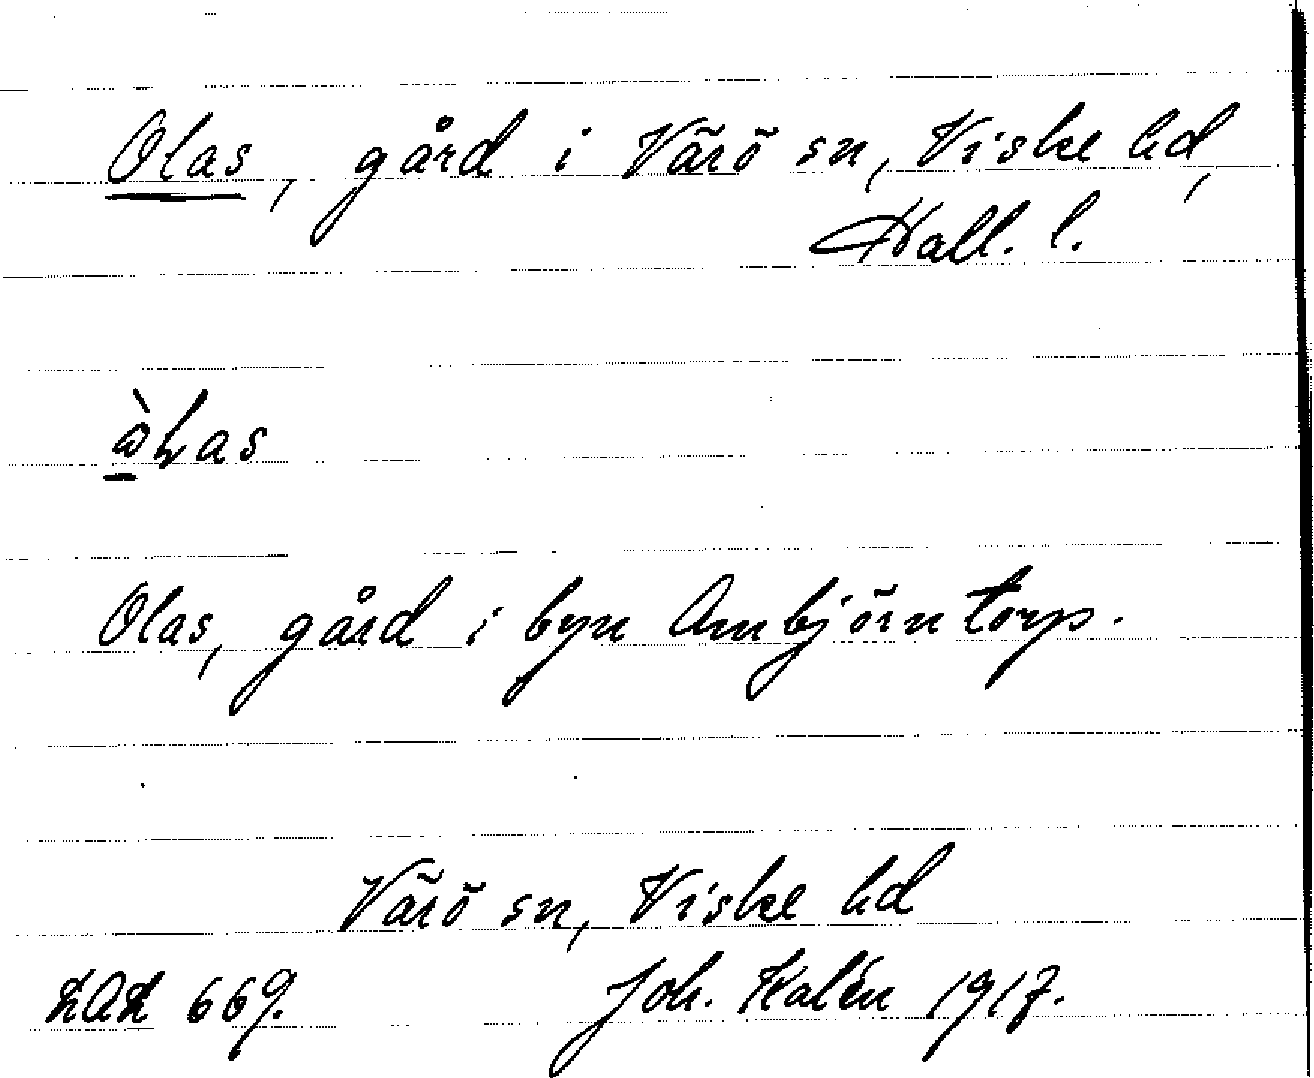 Olas, gård i Värö sn, Viske hd,
Hall. l.
Olas, gård i byn Ambjörntorp.
Värö sn, Viske hd
LAL 669. Joh. Kalén 1917.